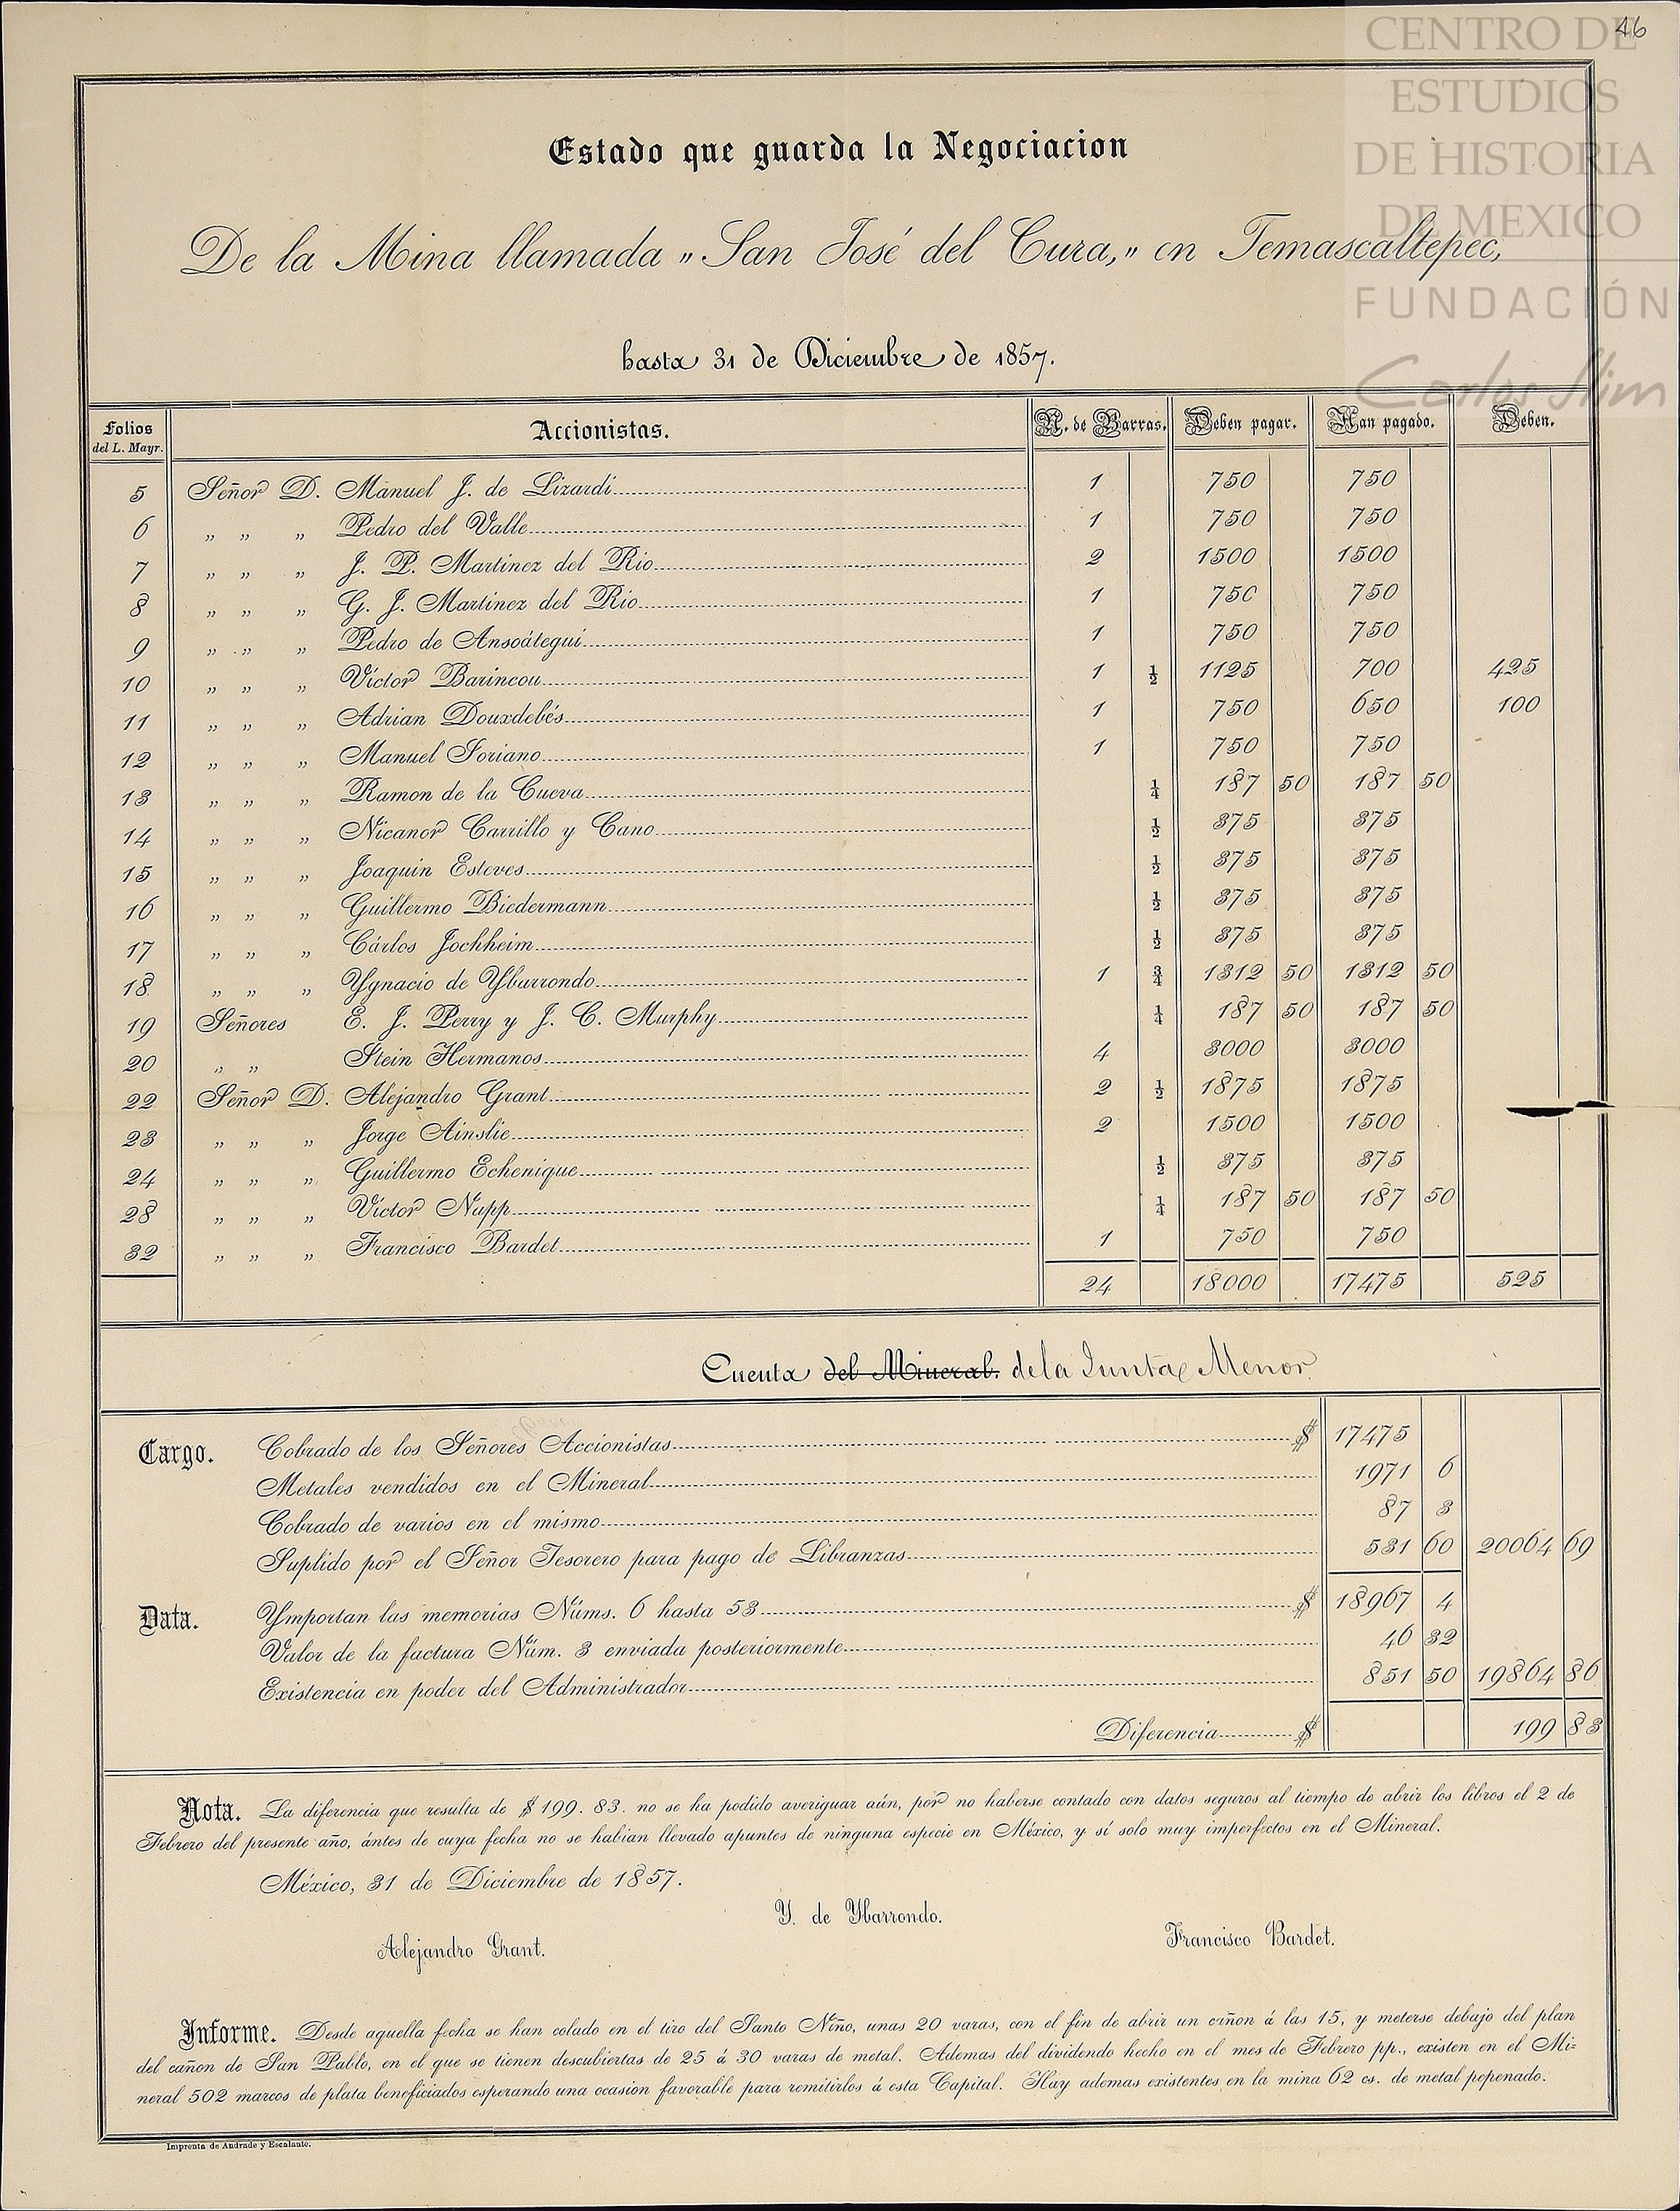 46
CENTRO DE
ESTUDIOS
DE HISTORIA
DE MEXICO
FUNDACIÓN
Carlos Slim
Estado que guarda la Negociacion
De la Mina llamada „San José del Cura,„ en Temascaltepec,
hasta 31 de Diciembre de 1857.
Folios del L. Mayr. Accionistas. N. de Barras. Deben pagar. Han pagado. Deben.
5 Señor D. Manuel J. de Lizardi 1 750 750
6 „ „ „ Pedro del Valle 1 750 750
7 „ „ „ J. P. Martinez del Rio 2 1500 1500
8 „ „ „ G. J. Martinez del Rio 1 750 750
9 „ „ „ Pedro de Ansoátegui 1 750 750
10 „ „ „ Víctor Barincou 1 ½ 1125 700 425
11 „ „ „ Adrian Douxdebés 1 750 650 100
12 „ „ „ Manuel Soriano 1 750 750
13 „ „ „ Ramon de la Cueva ¼ 187 50 187 50
14 „ „ „ Nicanor Carrillo y Cano ½ 375 375
15 „ „ „ Joaquin Esteves ½ 375 375
16 „ „ „ Guillermo Biedermann ½ 375 375
17 „ „ „ Cárlos Jochheim ½ 375 375
18 „ „ „ Ygnacio de Ybarrondo 1 ¾ 1312 50 1312 50
19 Señores E. J. Perry y J. C. Murphy ¼ 187 50 187 50
20 „ „ Stein Hermanos 4 3000 3000
22 Señor D. Alejandro Grant 2 ½ 1875 1875
23 „ „ „ Jorge Ainslie 2 1500 1500
24 „ „ „ Guillermo Echenique ½ 375 375
28 „ „ „ Víctor Napp ¼ 187 50 187 50
32 „ „ „ Francisco Bardet 1 750 750
24 18000 17475 525
Cuenta del Mineral. de la Junta Menor
Cargo. Cobrado de los Señores Accionistas $ 17475
Metales vendidos en el Mineral 1971 6
Cobrado de varios en el mismo 87 3
Suplido por el Señor Tesorero para pago de Libranzas 531 60 20064 69
Data. Ymportan las memorias Núms. 6 hasta 53 $ 18967 4
Valor de la factura Núm. 3 enviada posteriormente 46 32
Existencia en poder del Administrador 851 50 19864 86
Diferencia $ 199 83
Nota. La diferencia que resulta de $ 199. 83. no se ha podido averiguar aún, por no haberse contado con datos seguros al tiempo de abrir los libros el 2 de
Febrero del presente año, ántes de cuya fecha no se habian llevado apuntes de ninguna especie en México, y sí solo muy imperfectos en el Mineral.
México, 31 de Diciembre de 1857.
Y. de Ybarrondo.
Alejandro Grant. Francisco Bardet.
Informe. Desde aquella fecha se han colado en el tiro del Santo Niño, unas 20 varas, con el fin de abrir un cañon á las 15, y meterse debajo del plan
del cañon de San Pablo, en el que se tienen descubiertas de 25 á 30 varas de metal. Ademas del dividendo hecho en el mes de Febrero pp., existen en el Mi-
neral 502 marcos de plata beneficiados esperando una ocasion favorable para remitirlos á esta Capital. Hay ademas existentes en la mina 62 cs. de metal pepenado.
Imprenta de Andrade y Escalante.